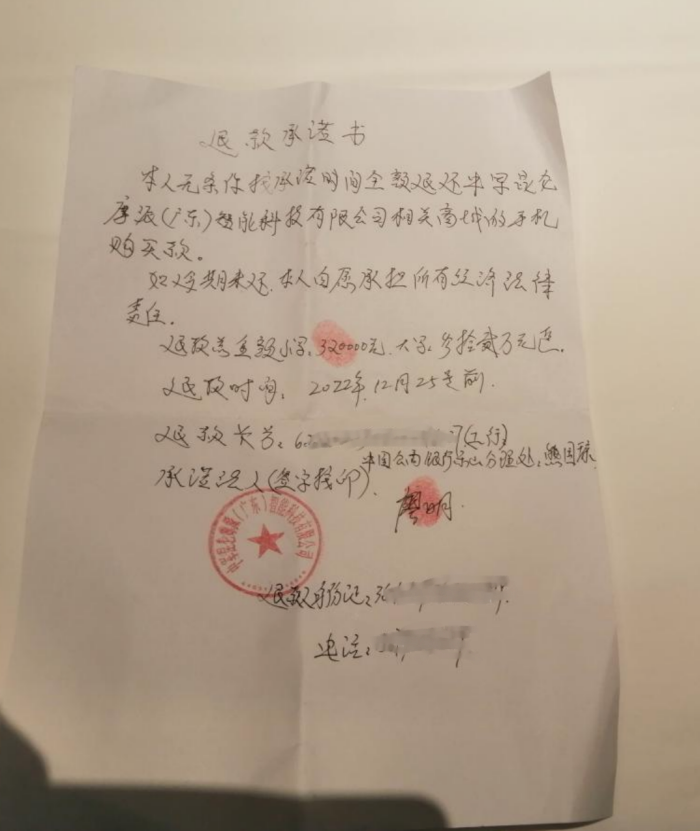 退款承诺书
本人无条件按承诺时间全额退还中孚昆仑
摩派(广东)智能科技有限公司相关商城的手机
购买款。
如以逾期未还.本人自愿承担所有经济法律
责任.
退款总金额小写:320000元.大写:叁拾贰万元正.
退款时间:2022年.12月25号前.
退款卡号:62 7(工行)
中国工商银行 分理处:熊国
承诺人(签字按印)
廖明.
(广东)智能科技有限公司
退款身份证:36
电话: